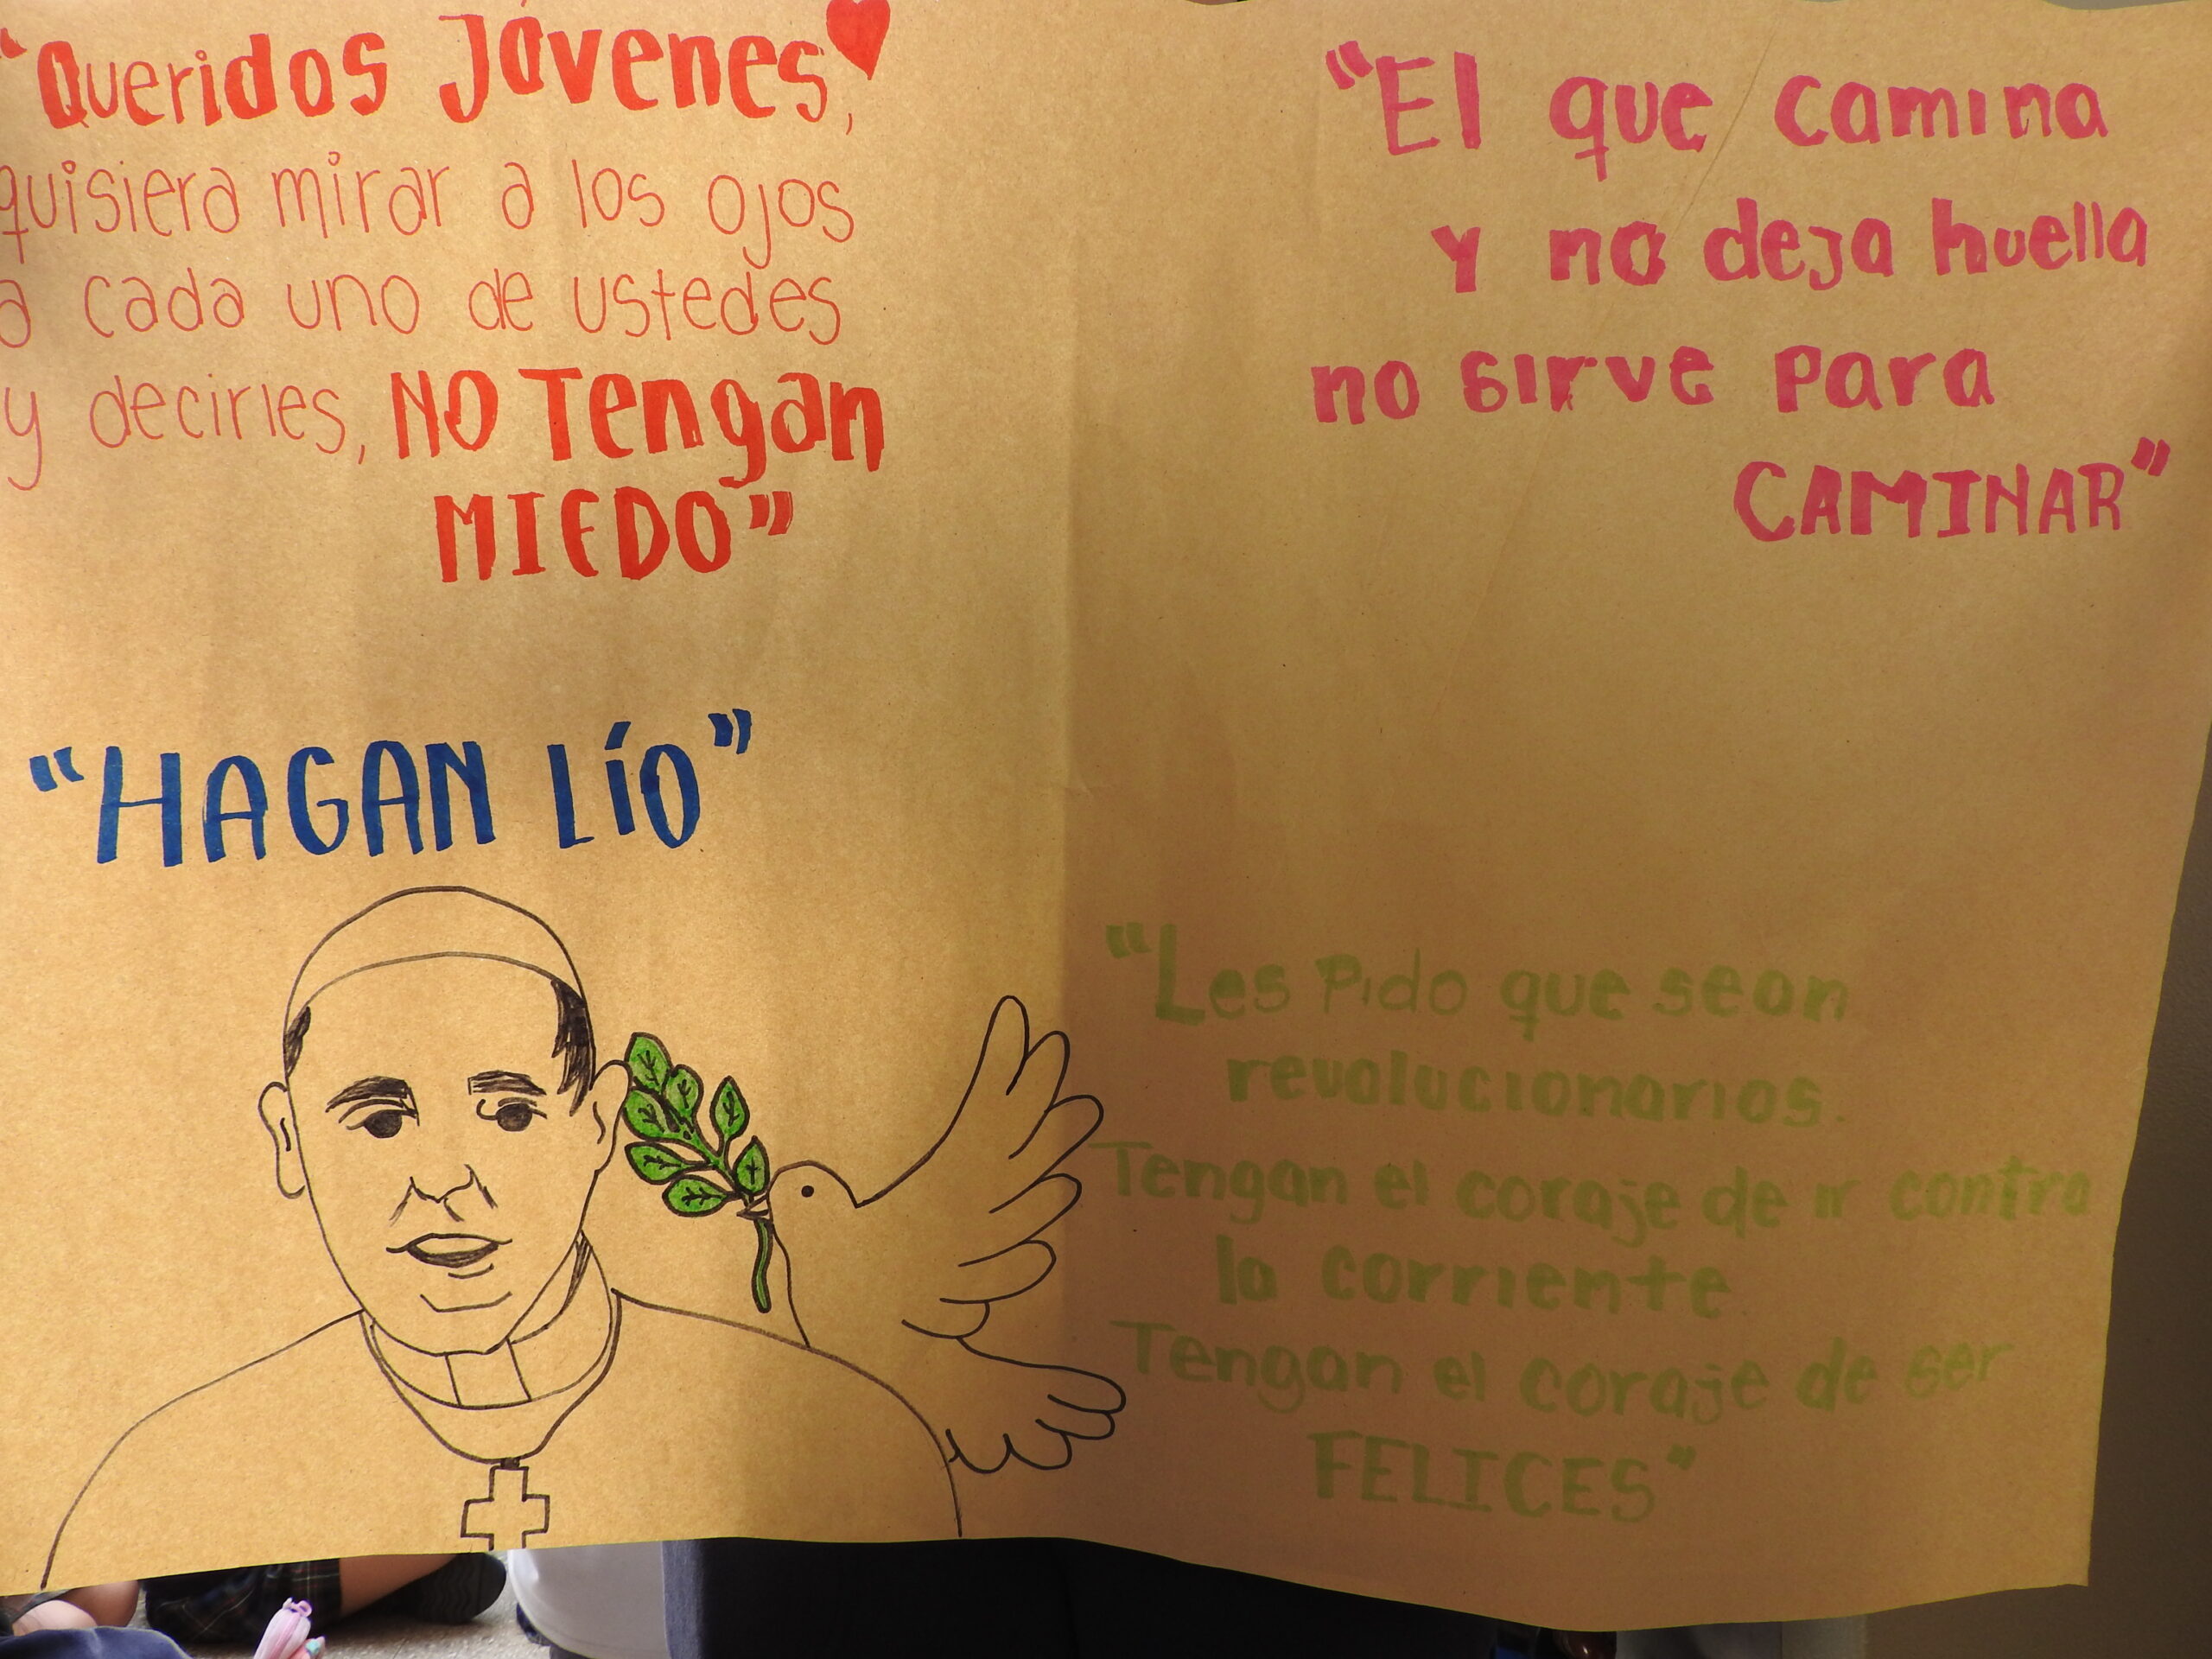 "Queridos Jóvenes,
quisiera mirar a los ojos
a cada uno de ustedes
y decirles, NO Tengan
MIEDO"
"HAGAN LÍO"
"El que camina
y no deja huella
no sirve para
CAMINAR"
"Les Pido que sean
revolucionarios.
Tengan el coraje de ir contra
la corriente
Tengan el coraje de ser
FELICES"